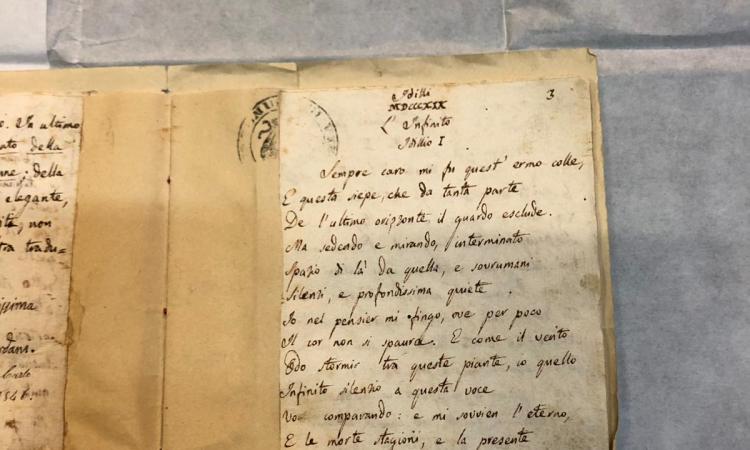 ultimo
della
della
elegante,
non
tradu=
issima
Idilli
MDCCCXIX
3
L' Infinito
Idillio I
Sempre caro mi fu quest' ermo colle,
E questa siepe, che da tanta parte
De l'ultimo orizzonte il guardo esclude.
Ma sedendo e mirando, interminato
Spazio di là da quella, e sovrumani
Silenzi, e profondissima quiete
Io nel pensier mi fingo, ove per poco
Il cor non si spaura. E come il vento
Odo stormir tra queste piante, io quello
Infinito silenzio a questa voce
Vo comparando: e mi sovvien l'eterno,
E le morte stagioni, e la presente